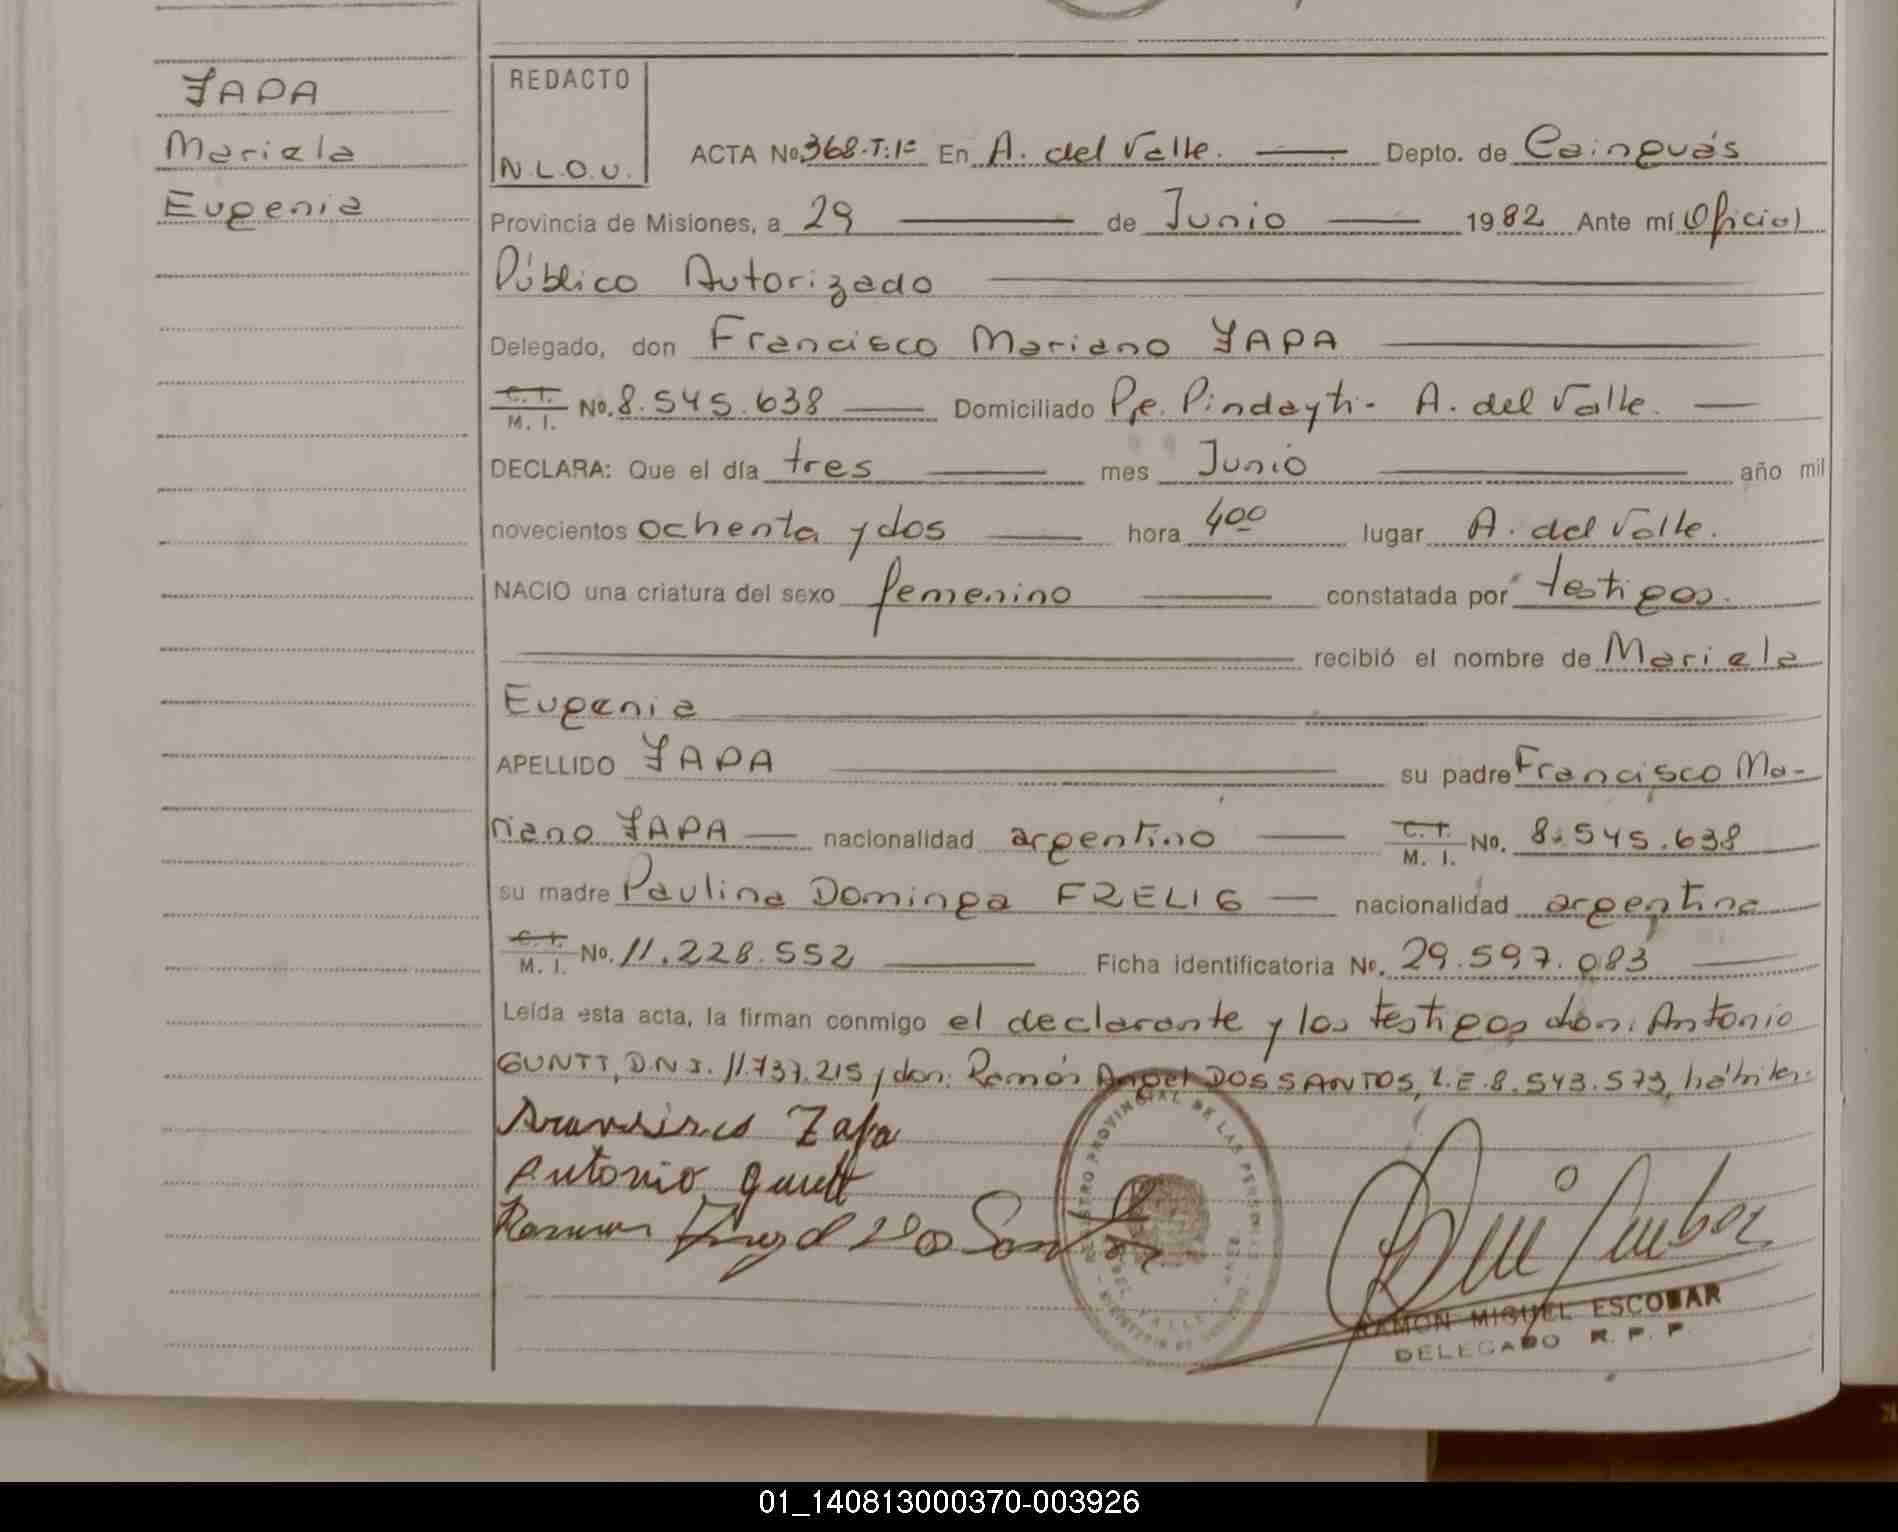 ZAPA
Mariela
Eugenia
REDACTO
N.L.O.U.
ACTA No. 368-T:1º En A. del Valle. Depto. de Cainguás
Provincia de Misiones, a 29 de Junio 1982 Ante mí Oficial
Público Autorizado
Delegado, don Francisco Mariano ZAPA
C. I. M. I. No. 8.545.638 Domiciliado Pje. Pindayti - A. del Valle.
DECLARA: Que el día tres mes Junio año mil
novecientos ochenta y dos hora 4ºº lugar A. del Valle.
NACIO una criatura del sexo femenino constatada por testigos.
recibió el nombre de Mariela
Eugenia
APELLIDO ZAPA su padre Francisco Ma-
riano ZAPA nacionalidad argentino C. I. M. I. No. 8.545.638
su madre Paulina Dominga FRELIG nacionalidad argentina
C. I. M. I. No. 11.228.552 Ficha identificatoria No. 29.597.083
Leída esta acta, la firman conmigo el declarante y los testigos don: Antonio
GUNTT, D.N.I. 11.737.215 y don: Ramón Angel DOS SANTOS, L.E. 8.543.573, hábiles.
Zapa
Antonio Guntt
Ramon Angel Do Santos
REGISTRO PROVINCIAL DE LAS PERSONAS
DEL VALLE
RAMON MIGUEL ESCOBAR
DELEGADO R. P. P.
01_140813000370-003926